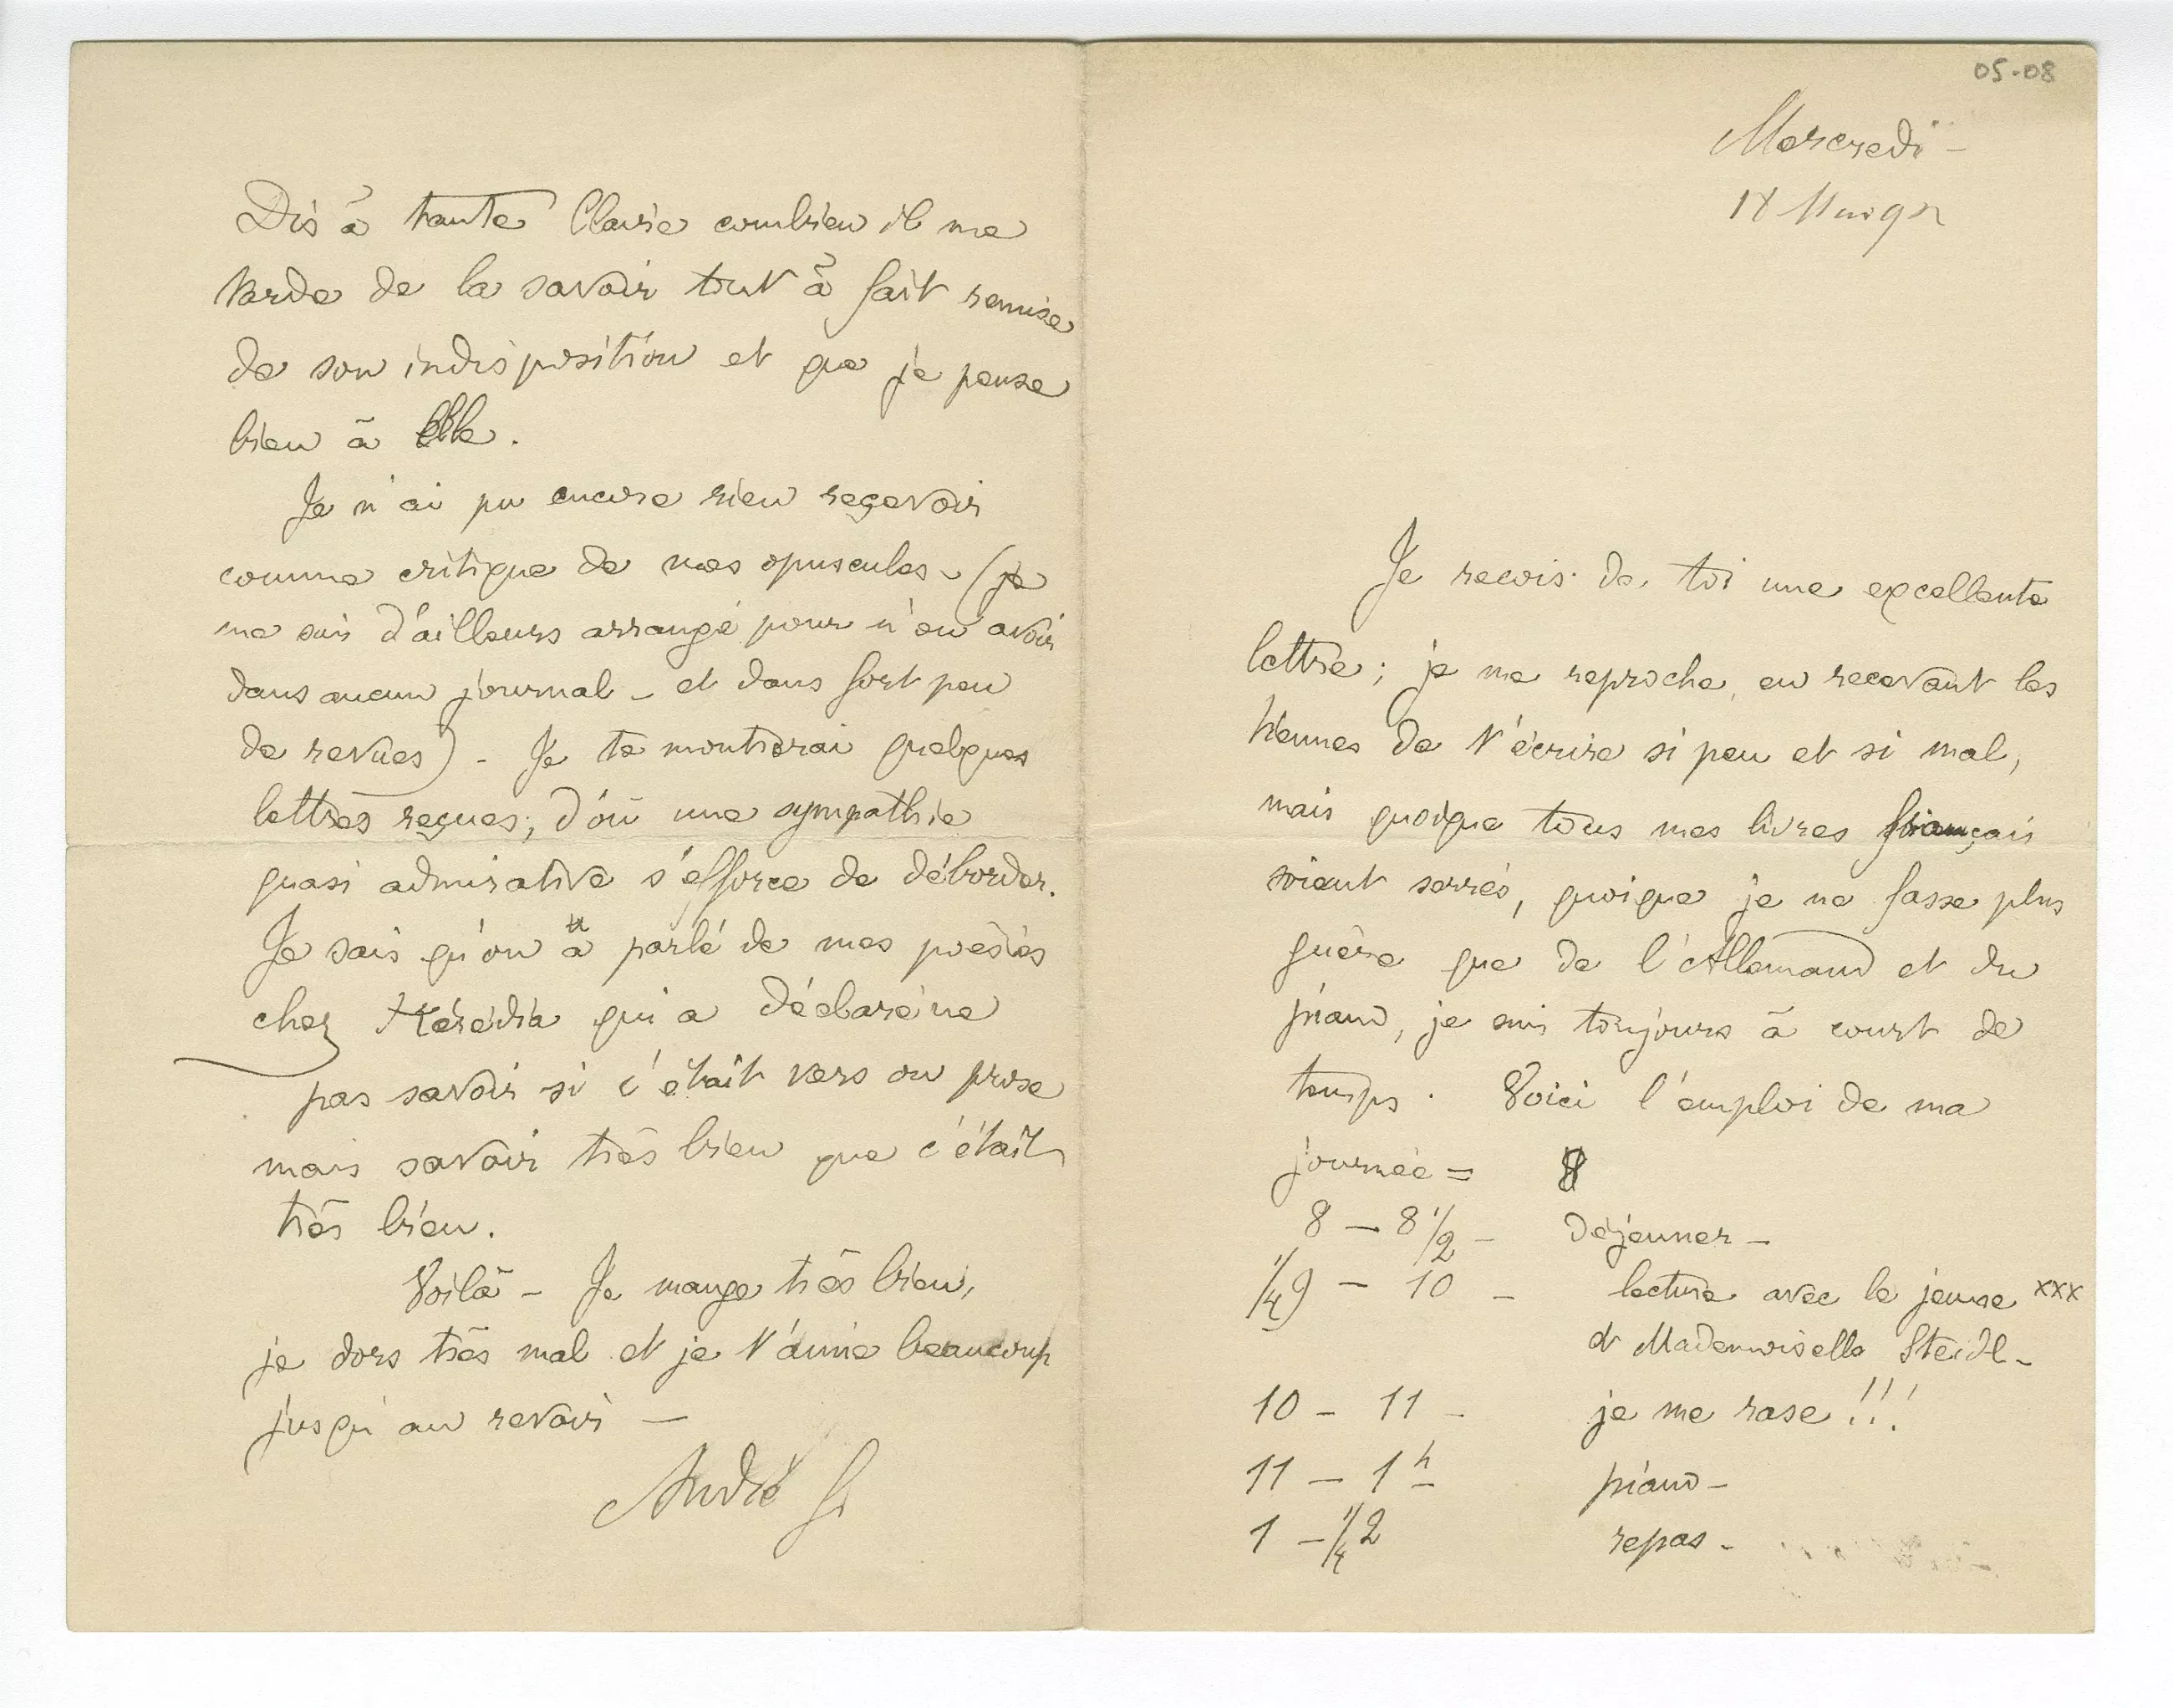 Dis à tante Claire combien il me
tarde de la savoir tout à fait remise
de son indisposition et que je pense
bien à Elle.
Je n'ai pu encore rien reçevoir
comme critique de mes opuscules - (je
me suis d'ailleurs arrangé pour n'en avoir
dans aucun journal - et dans fort peu
de revues) - Je te montrerai quelques
lettres reçues, d'où une sympathie
quasi admirative s'efforce de déborder.
Je sais qu'on a parlé de mes poésies
chez Hérédia qui a déclaré ne
pas savoir si c'était vers ou prose
mais savoir très bien que c'était
très bien.
Voilà - Je mange très bien,
je dors très mal et je t'aime beaucoup
jusqu'au revoir -
André G
05-08
Mercredi -
18 Mai 92
Je recois de toi une excellente
lettre ; je me reproche, en recevant les
tiennes de t'écrire si peu et si mal,
mais quoique tous mes livres français
soient serrés, quoique je ne fasse plus
guère que de l'Allemand et du
piano, je suis toujours à court de
temps. Voici l'emploi de ma
journée = 8
8 - 8 1/2 - Déjeuner -
1/4 9 - 10 - lecture avec le jeune xxx
et Mademoiselle Steidl -
10 - 11 - je me rase !!!
11 - 1 h piano -
1 - 1/4 2 repas -